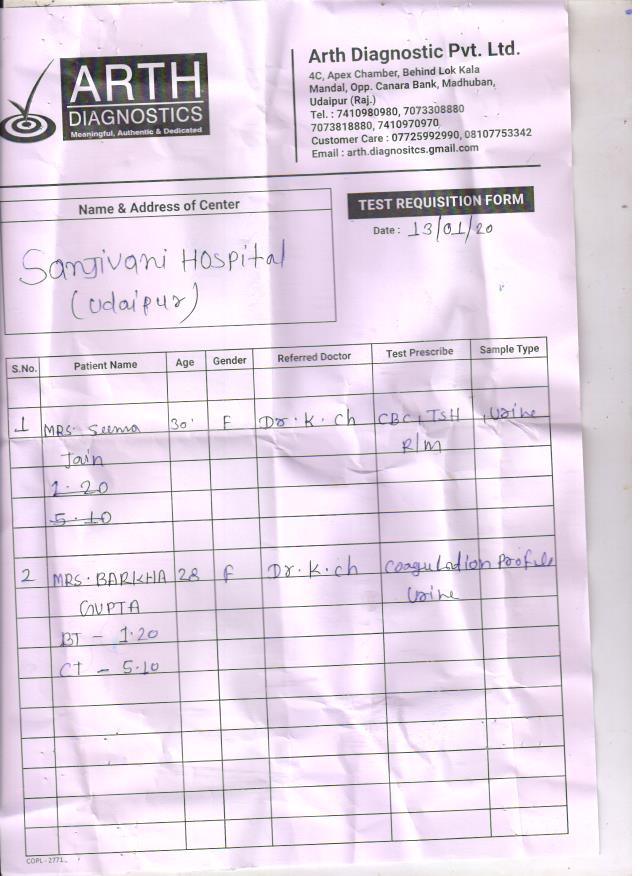 ARTH
DIAGNOSTICS
Meaningful, Authentic & Dedicated
Arth Diagnostic Pvt. Ltd.
4C, Apex Chamber, Behind Lok Kala
Mandal, Opp. Canara Bank, Madhuban,
Udaipur (Raj.)
Tel. : 7410980980, 7073308880
7073818880, 7410970970
Customer Care : 07725992990, 08107753342
Email : arth.diagnositcs.gmail.com
Name & Address of Center
TEST REQUISITION FORM
Date : 13/01/20
Sanjivani Hospital
(Udaipur)
S.No. Patient Name Age Gender Referred Doctor Test Prescribe Sample Type
1 MRS. Seema 30 F Dr. K. ch CBC, TSH, Urine
Jain R/m
1.20
5.10
2 MRS. BARKHA 28 F Dr. K. ch Coagulation Profile
GUPTA Urine
BT - 1.20
CT - 5.10
COPL - 2771